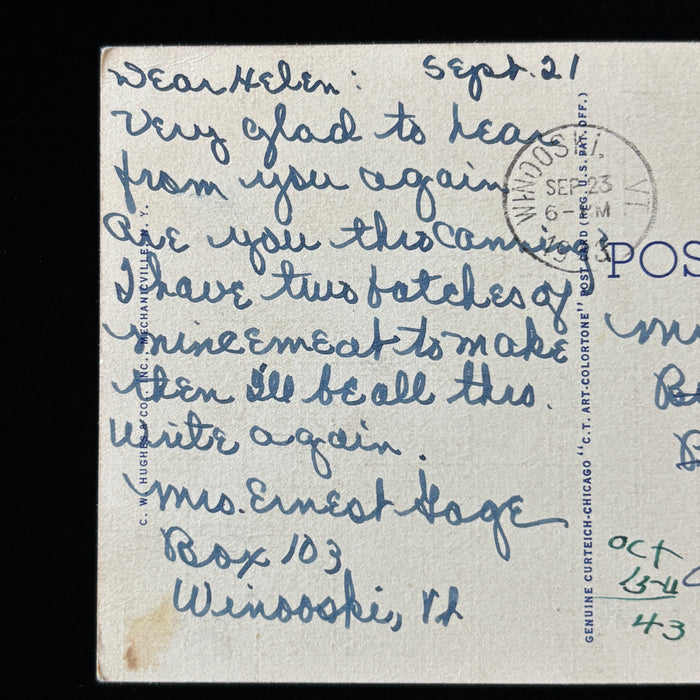 Dear Helen: Sept. 21
Very glad to hear
from you again
Are you thro canning?
I have two batches of
mincemeat to make
then I'll be all thro.
Write again.
Mrs. Ernest Gage
Box 103
Winooski, Vt
C. W. HUGHES & CO., INC., MECHANICVILLE, N. Y.
GENUINE CURTEICH-CHICAGO "C. T. ART-COLORTONE" POST CARD (REG. U. S. PAT. OFF.)
WINOOSKI, VT.
SEP 23
6- M
1943
POS
Oct
13-11
43